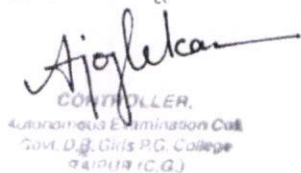 Ajoglekar
CONTROLLER,
Autonomous Examination Cell,
Govt. D.B. Girls P.G. College
RAIPUR (C.G.)